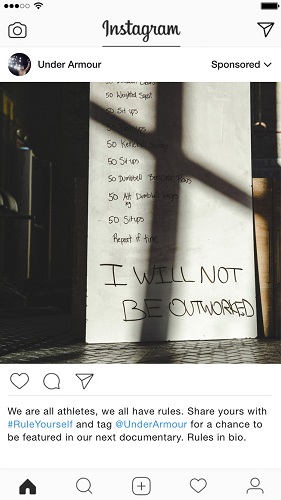 Instagram
Under Armour
Sponsored
50 Weighted Squat
50 Sit ups
50
50 Situps
50 Dumbbell Rows
50 Alt Dumbbell
50 Situps
I WILL NOT
BE OUTWORKED
We are all athletes, we all have rules. Share yours with
#RuleYourself and tag @UnderArmour for a chance to
be featured in our next documentary. Rules in bio.